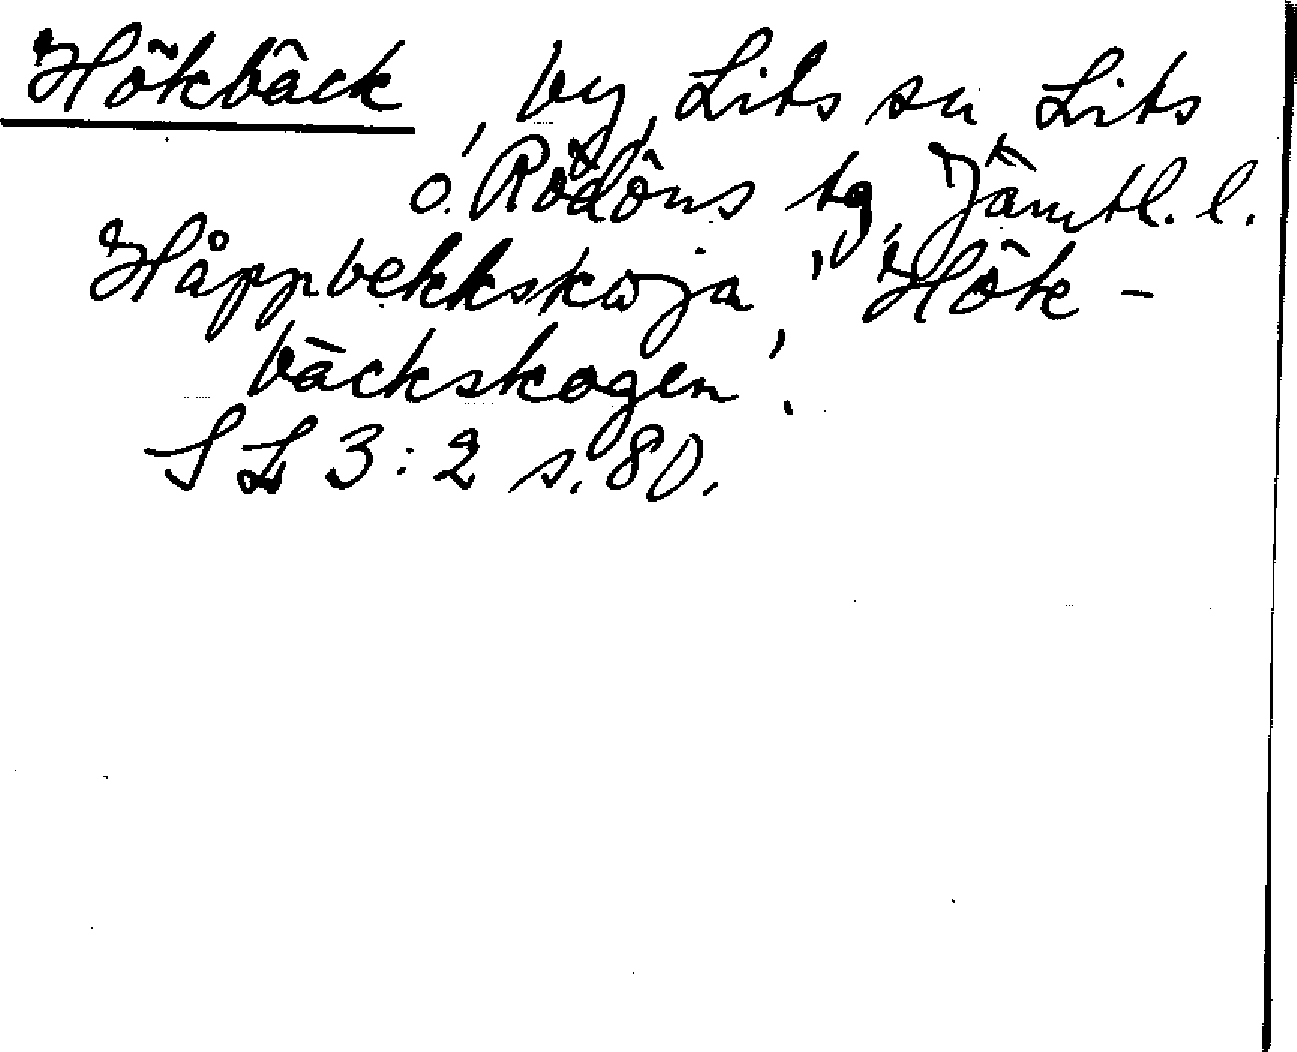 Hökbäck, by, Lits sn, Lits
o. Rödöns tg, Jämtl. l.
Håppbekkskoja 'Hök-
bäckskogen'.
SL 3:2 s. 80.